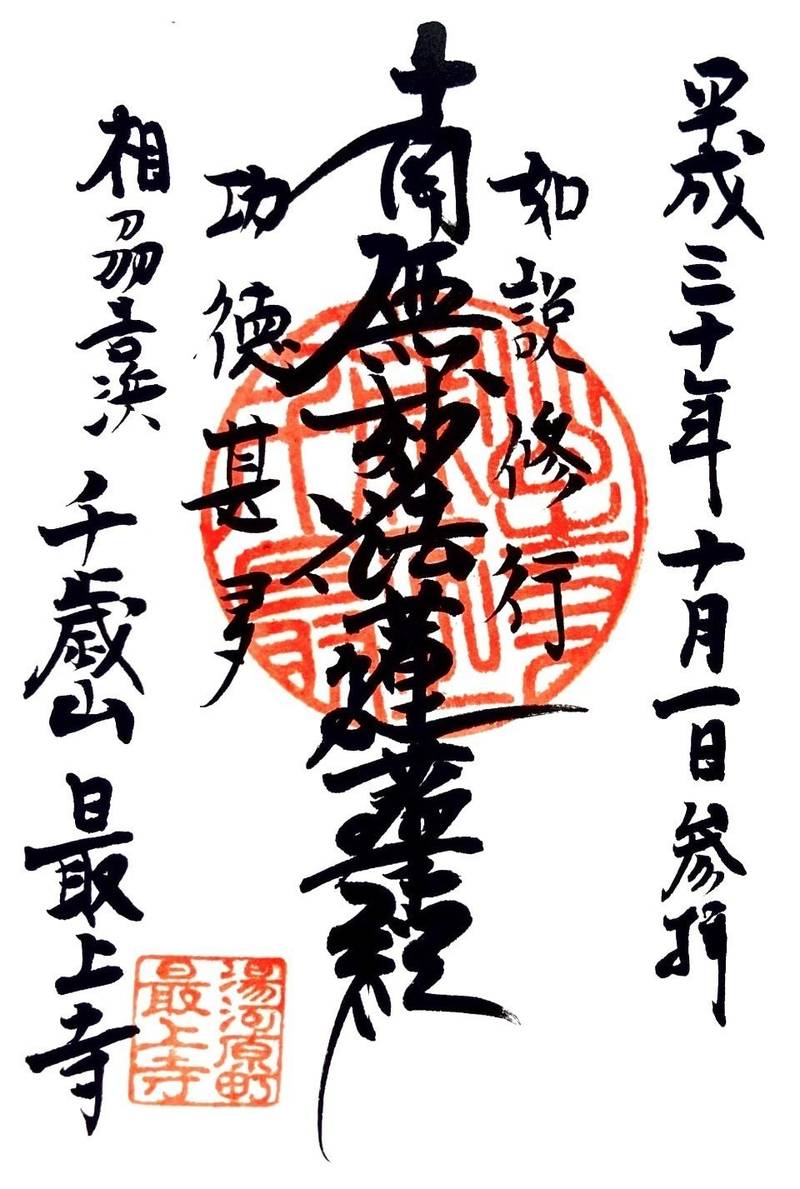 平成三十年十月一日参拝
如説修行
南無妙法蓮華経
功徳甚多
相刕吉浜
千歳山最上寺
湯河原町
最上寺